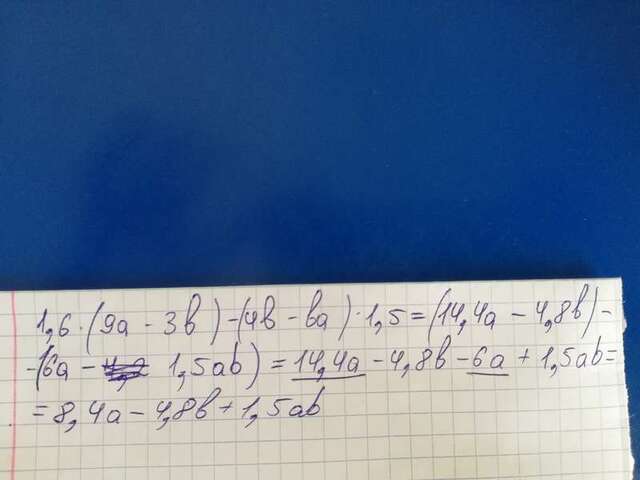 1,6·(9a - 3b) - (4b - ba)·1,5 = (14,4a - 4,8b) -
- (6a - 1,5ab) = 14,4a - 4,8b - 6a + 1,5ab =
= 8,4a - 4,8b + 1,5ab